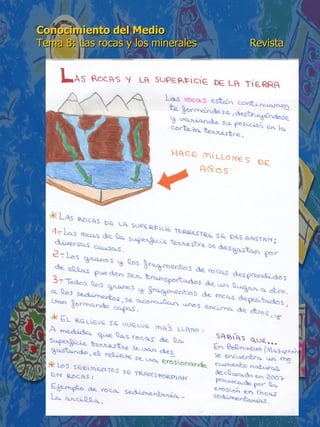 Conocimiento del Medio
Tema 8: Las rocas y los minerales Revista
LAS ROCAS Y LA SUPERFICIE DE LA TIERRA
Las rocas están continuamen
te formándose, destruyéndose
y variando su posición en la
corteza terrestre.
HACE MILLONES DE
AÑOS
*LAS ROCAS DE LA SUPERFICIE TERRESTRE SE DESGASTAN:
1-Las rocas de la superficie terrestre se desgastan por
diversas causas.
2-Los granos y los fragmentos de rocas desprendidos
de ellas pueden ser transportados de un lugar a otro.
3-Todos los granos y fragmentos de rocas depositados,
a los sedimentos, se acumulan unos encima de otros, y
van formando capas.
*EL RELIEVE SE VUELVE MÁS LLANO:
A medida que las rocas de la
superficie terrestre se van des
gastando, el relieve se va erosionando
*LOS SEDIMENTOS SE TRANSFORMAN
EN ROCAS:
Ejemplo de roca sedimentaria-
La arcilla.
SABÍAS QUE...
En Bolnuevo (Mazarrón)
se encuentra un mo
numento natural
declarado en 2007
provocado por la
erosión en rocas
sedimentarias.